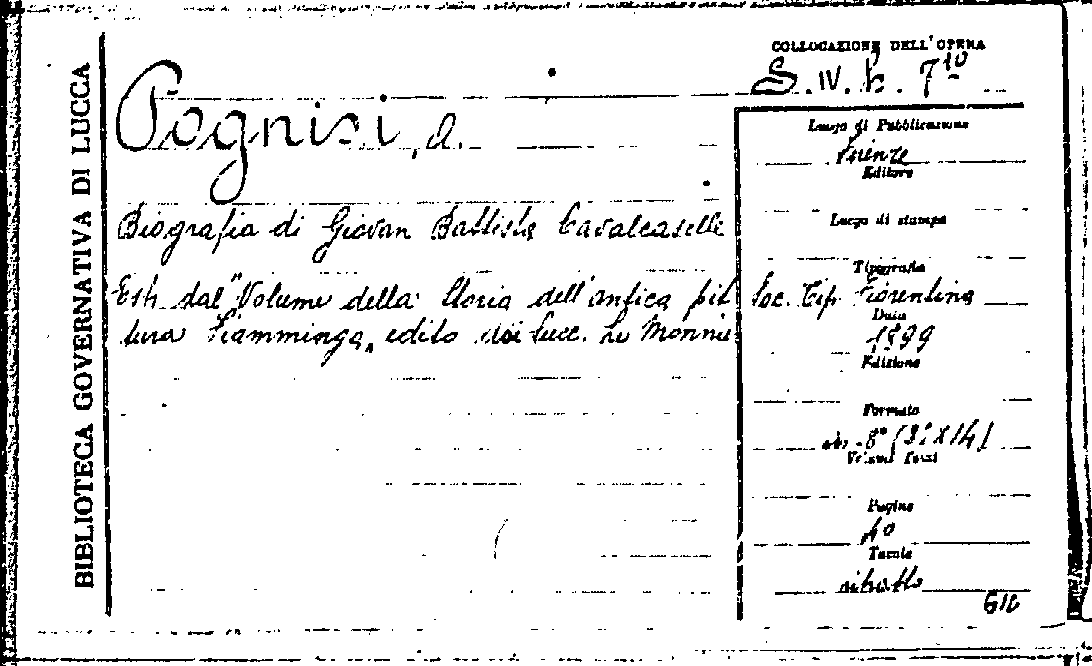 BIBLIOTECA GOVERNATIVA DI LUCCA
COLLOCAZIONE DELL'OPERA
S. IV. b. 7¹⁰
Pognisi, A.
Biografia di Giovan Battista Cavalcaselle
Estr. dal "Volume della Storia dell'antica pit
tura Fiamminga" edito dai Succ. Le Monnier
Luogo di Pubblicazione
Firenze
Editore
Luogo di stampa
Tipografia
Soc. Tip. Fiorentina
Data
1899
Edizione
Formato
8°
Pagine
40
Tavole
ritratto